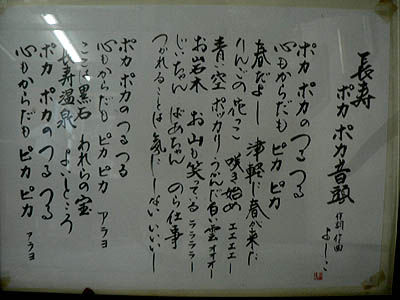 長寿
ポカ ポカ音頭 作詞作曲 よしこ
ポカ ポカのつる つる
心もからだも ピカ ピカ
春だよー 津軽に春が来た
りんごの花っこ 咲き始め エエエエー
青い空 ポッカリうかんだ 白い雲 オオオー
お岩木 お山も笑ってる ララララー
じいちゃん ばあちゃん のら仕事
つかれることは 気にしない いいいー
ポカ ポカのつる つる
心もからだも ピカ ピカ アラヨ
ここは黒石 われらの宝
長寿温泉 よいところ
ポカ ポカの つる つる
心もからだも ピカ ピカ アラヨ